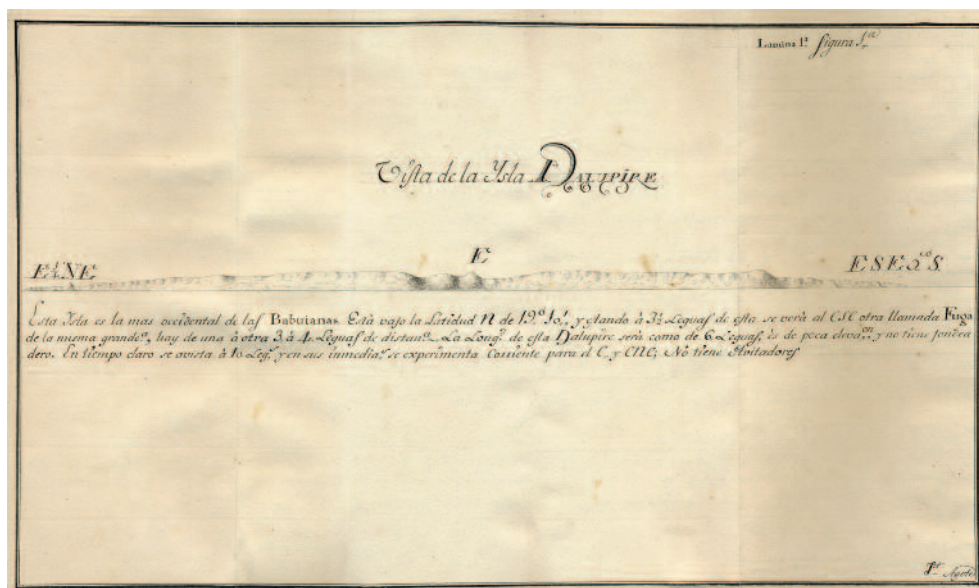 Lamina 1ª figura 1ª
Vista de la Ysla DALUPIRE
E¼NE E ESE5ºS
Esta Ysla es la mas occidental de las Babuianas. Està vajo la Latidud N de 19º 10', y estando à 3½ Leguas de esta se verà al ESE otra llamada Fuga
de la misma grandeª, hay de una à otra 3 à 4 Leguas de distanª. La Longª de esta Dalupire serà como de 6 Leguas, ès de poca elevaon y no tiene fondea
dero. En tiempo claro se avista à 10 Legª y en sus inmediaª se experimenta Corriente para el E y ENE; No tiene Avitadores